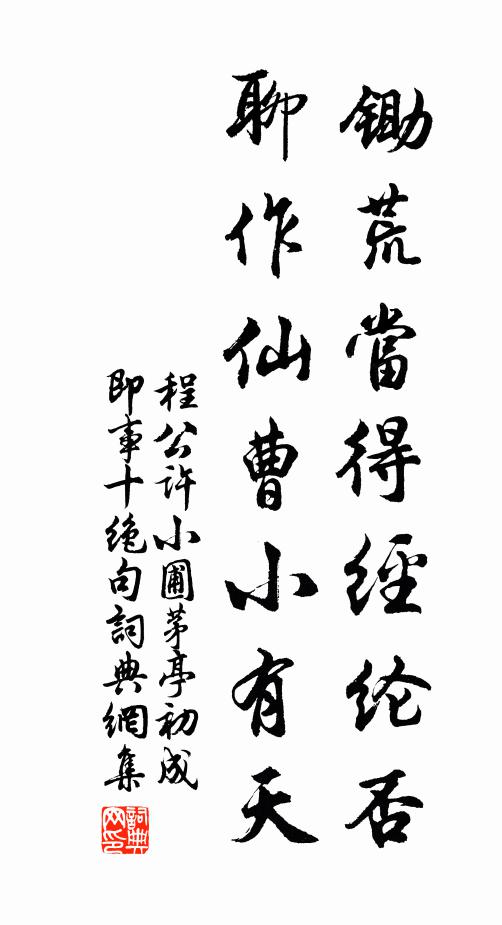 鋤荒當得經纶否
聊作仙曹小有天
程公许小圃茅亭初成
即事十绝句詞典網集
詞典
网印